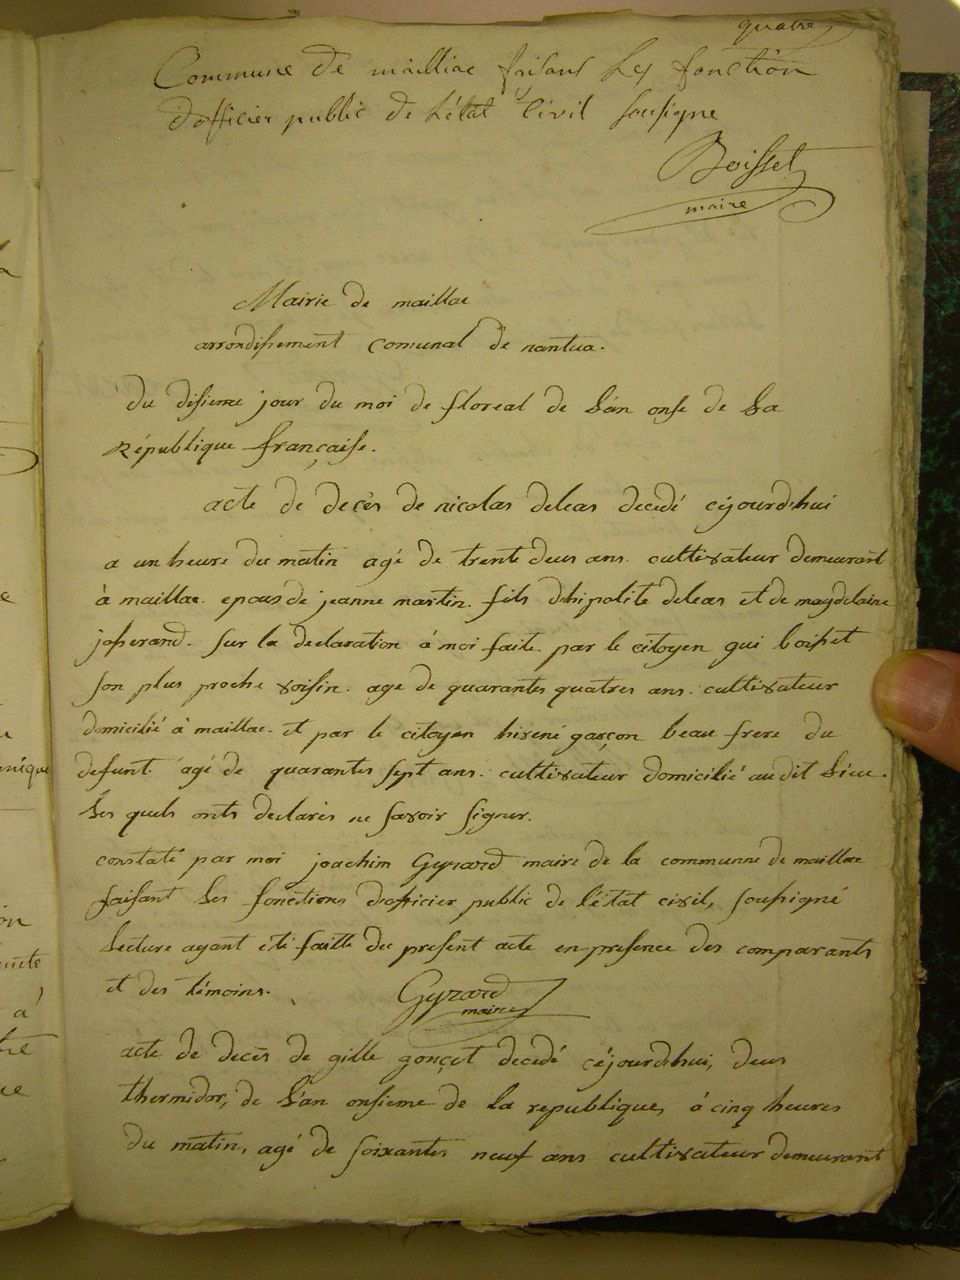 quatre
Commune de mailliac faisant Les fonction
d'officier public de L'état Civil sousigne
Boisset
maire
Mairie de maillac
arrondissement comunal de nantua.
du disieme jour du moi de floreal de L'an onse de La
République française.
acte de decès de nicolas deleas decedé cejourd'hui
a un heure du matin agé de trente deus ans. cultivateur demeurant
à maillac. epous de jeanne martin. fils d'hipolite deleas et de magdelaine
josserand. sur la declaration à moi faite par le citoyen gui boisset
son plus proche voisin. age de quarantes quatres ans. cultivateur
domicilié à maillac. et par le citoyen hiréné garçon beau frere du
defunt. agé de quarantes sept ans. cultivateur domicilié audit Lieu.
Les quels onts declarés ne savoir signer.
constaté par moi joachim Gyrard maire de la communne de maillac
faisant Les fonctions d'officier public de l'état civil, soussigné
Lecture ayant été faitte du present acte en presence des comparants
et des témoins.
Gyrard
maire
acte de decès de gille gonçet decedé cejourd'hui, deus
thermidor, de L'an onsieme de La republique, à cinq heures
du matin, agé de soixantes neuf ans cultivateur demeurant